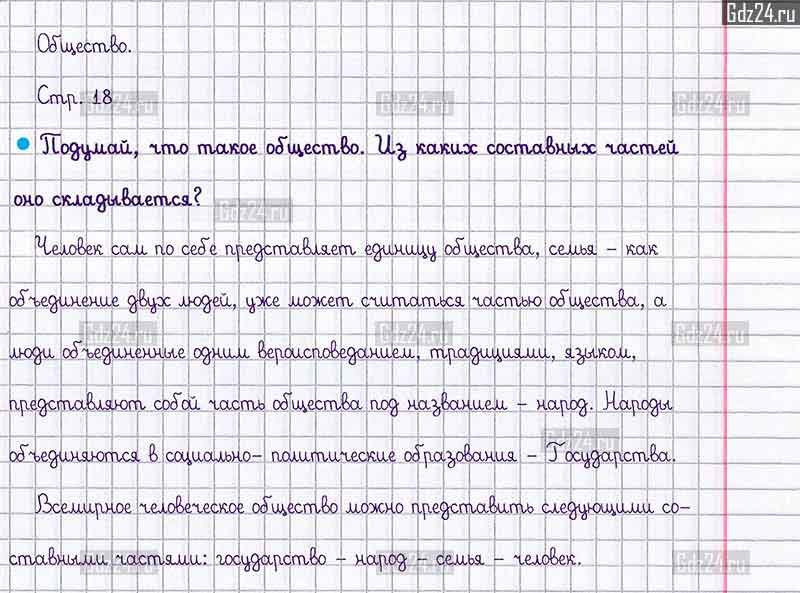 Gdz24.ru
Общество.
Стр. 18
Gdz24.ru Gdz24.ru Gdz24.ru
Подумай, что такое общество. Из каких составных частей
оно складывается?
Gdz24.ru
Человек сам по себе представляет единицу общества, семья – как
объединение двух людей, уже может считаться частью общества, а
Gdz24.ru Gdz24.ru Gdz24.ru
люди объединенные одним вероисповеданием, традициями, языком,
представляют собой часть общества под названием – народ. Народы
Gdz24.ru
объединяются в социально– политические образования – Государства.
Всемирное человеческое общество можно представить следующими со–
ставными частями: государство – народ – семья – человек.
Gdz24.ru Gdz24.ru Gdz24.ru